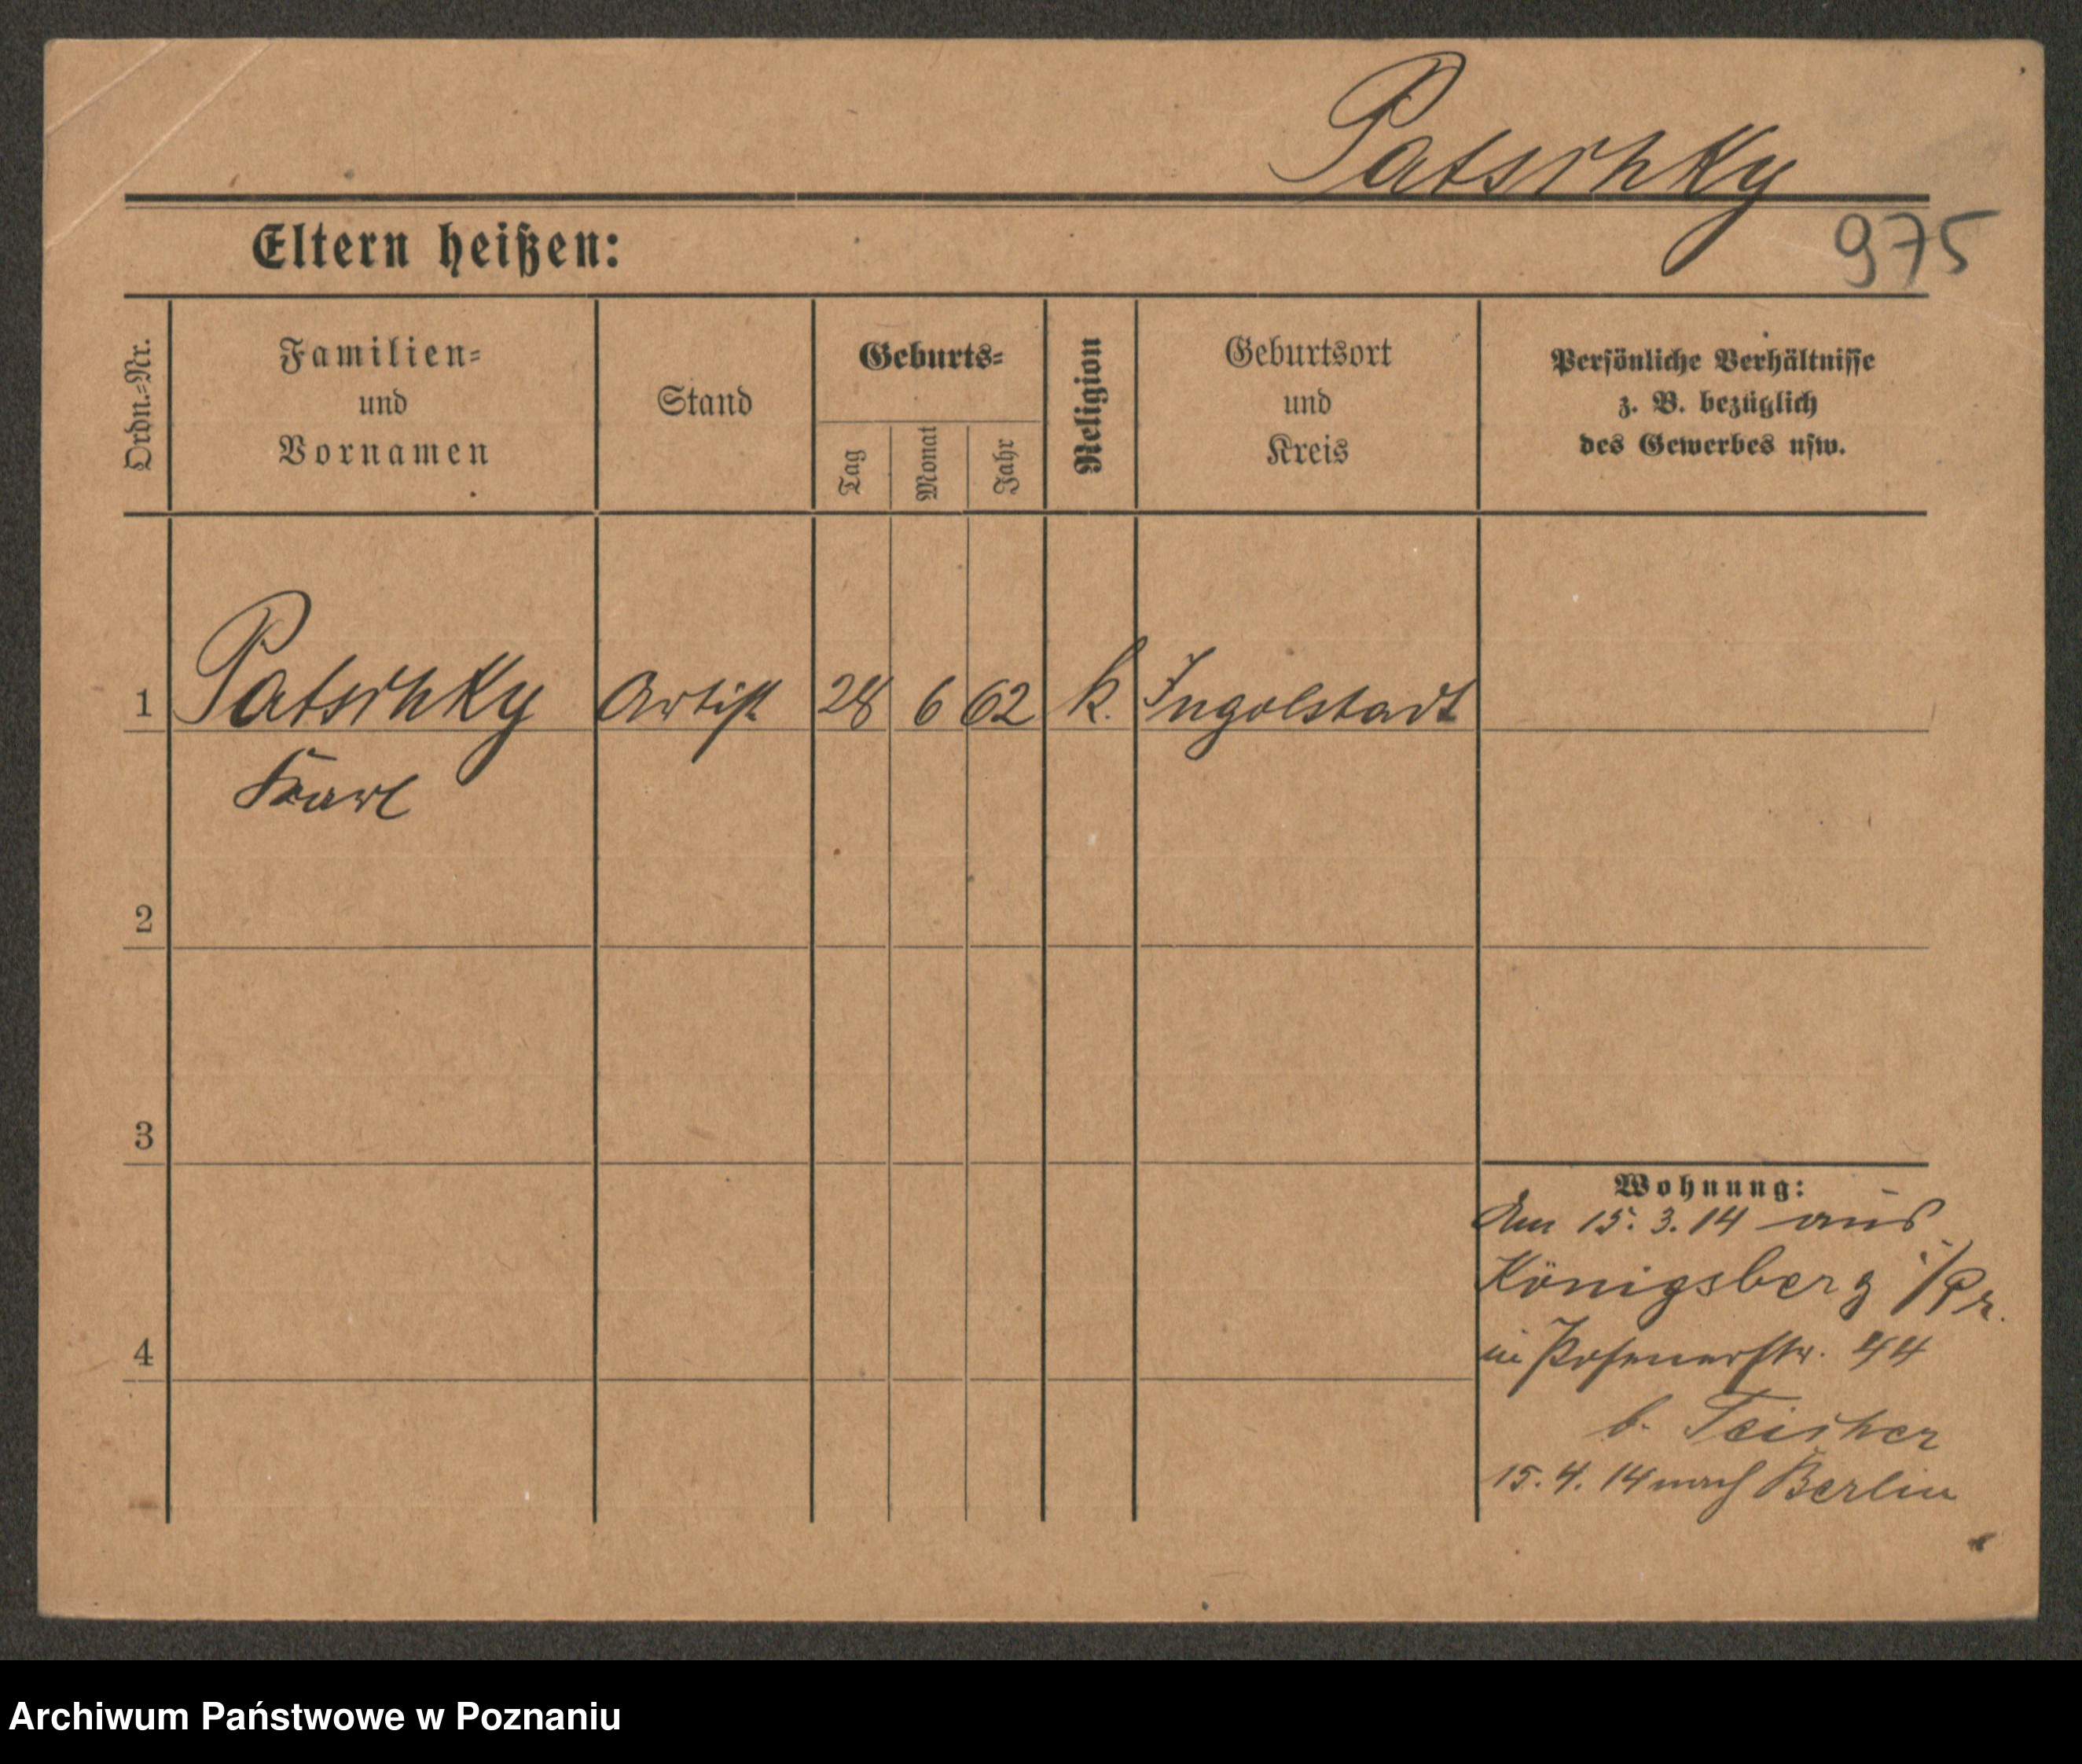 Patschky
975
Eltern heißen:
Ordn.=Nr.
Familien=
und
Vornamen
Stand
Geburts=
Tag
Monat
Jahr
Religion
Geburtsort
und
Kreis
Persönliche Verhältnisse
z. B. bezüglich
des Gewerbes usw.
1 Patschky Artist 28 6 62 k. Ingolstadt
Karl
2
3
4
Wohnung:
Am 15. 3. 14 aus
Königsberg i/Pr.
in Posenerstr. 44
b. Teicher
15. 4. 14 nach Berlin
Archiwum Państwowe w Poznaniu